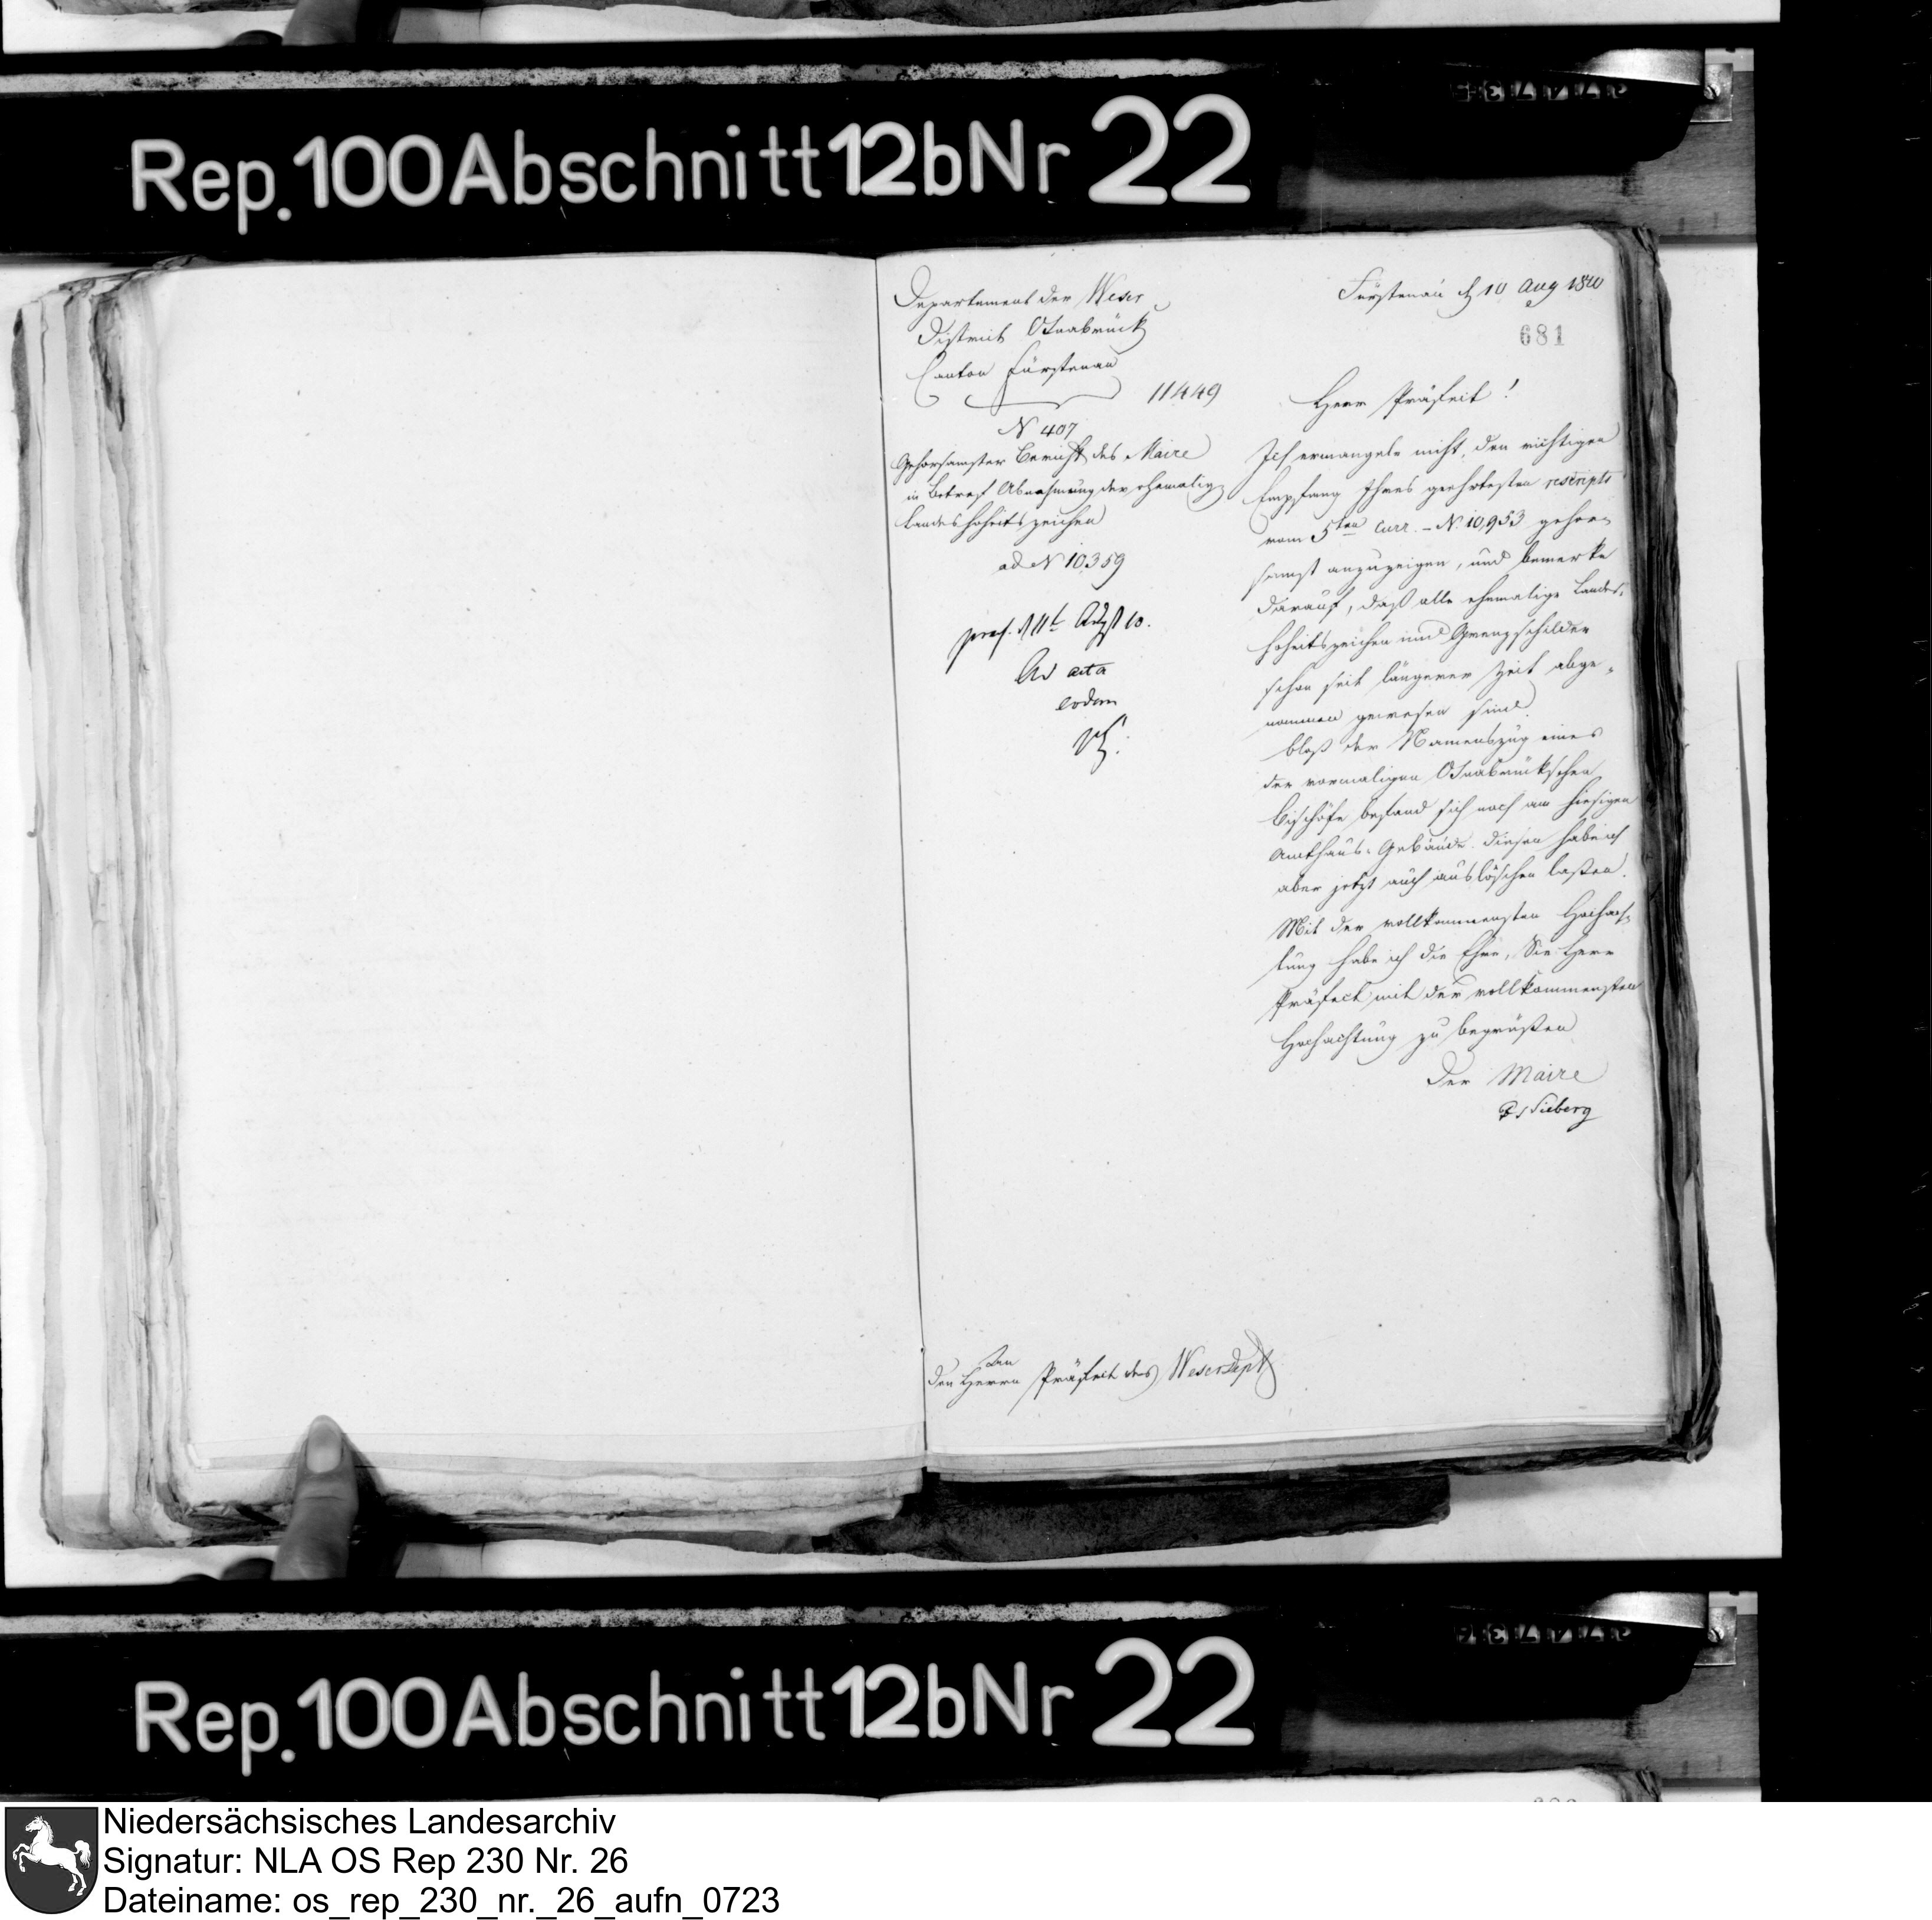 Rep. 100 Abschnitt 12b Nr 22
Departement der Weser
District Osnabrück
Canton Fürstenau
11449
N 407
Gehorsamster Bericht des Maire
in Betref Abnahmung der ehemalig
Landeshoheitszeichen
ad N 10,359
praes. d 11t Augst 10.
Ad acta
eodem
Fürstenau d 10 Aug 1810
681
Herr Präfect!
Ich ermangele nicht, den richtigen
Empfang Ihres geehrtesten rescripts
vom 5ten curr. - N. 10,953 gehor-
samst anzuzeigen, und bemerke
darauf, daß alle ehemalige Landes-
hoheitszeichen und Grenzschilder
schon seit längerer Zeit abge-
nommen gewesen sind.
bloß der Namenszug eines
der vormaligen Osnabrückschen
Bischöfe befand sich noch am hiesigen
Amthaus-Gebäude. diesen habe ich
aber jetzt auch auslöschen laßen.
Mit der vollkommensten Hochach-
tung habe ich die Ehre, Sie Herr
Präfect mit der vollkommensten
Hochachtung zu begrüßen
Der Maire
Sieberg
An
den Herrn Präfect des Weserdept
Rep. 100 Abschnitt 12b Nr 22
Niedersächsisches Landesarchiv
Signatur: NLA OS Rep 230 Nr. 26
Dateiname: os_rep_230_nr._26_aufn_0723